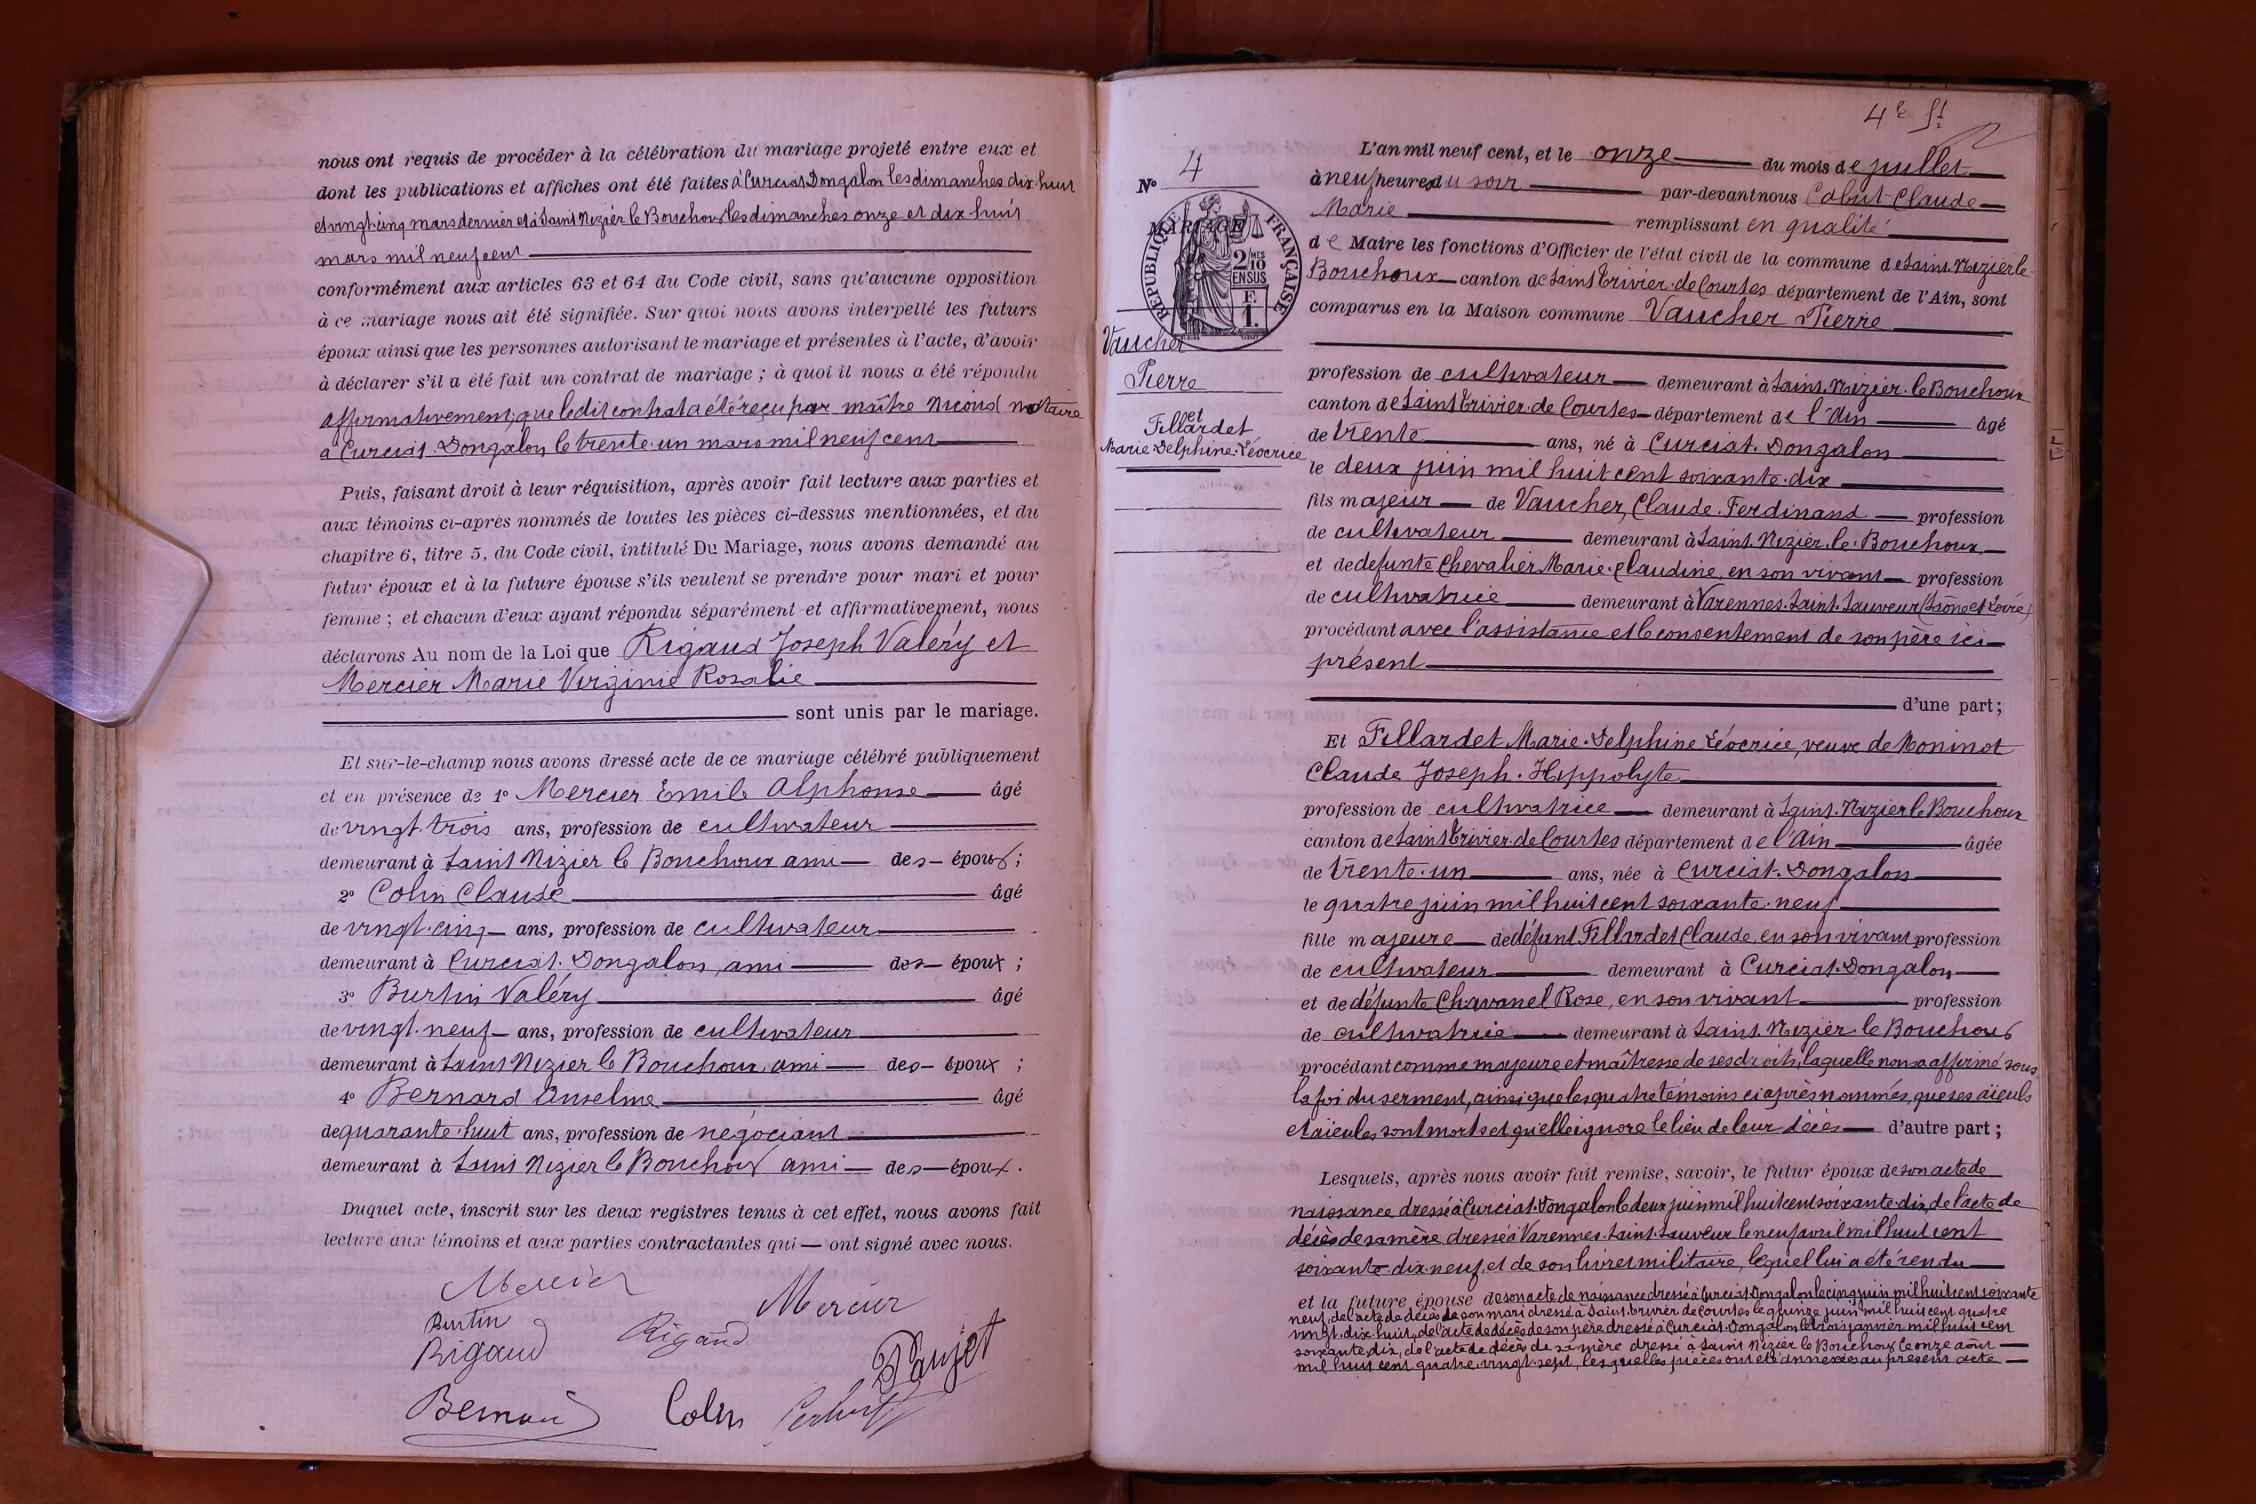 nous ont requis de procéder à la célébration du mariage projeté entre eux et
dont les publications et affiches ont été faites à Curciat Dongalon les dimanches dix-huit
et vingt-cinq mars dernier et à Saint Nizier le Bouchoux les dimanches onze et dix-huit
mars mil neuf cent
conformément aux articles 63 et 64 du Code civil, sans qu'aucune opposition
à ce mariage nous ait été signifiée. Sur quoi nous avons interpellé les futurs
époux ainsi que les personnes autorisant le mariage et présentes à l'acte, d'avoir
à déclarer s'il a été fait un contrat de mariage ; à quoi il nous a été répondu
affirmativement, que ledit contrat a été reçu par maître Nicoud notaire
à Curciat-Dongalon le trente-un mars mil neuf cent
Puis, faisant droit à leur réquisition, après avoir fait lecture aux parties et
aux témoins ci-après nommés de toutes les pièces ci-dessus mentionnées, et du
chapitre 6, titre 5, du Code civil, intitulé Du Mariage, nous avons demandé au
futur époux et à la future épouse s'ils veulent se prendre pour mari et pour
femme ; et chacun d'eux ayant répondu séparément et affirmativement, nous
déclarons Au nom de la Loi que Rigaud Joseph Valéry et
Mercier Marie Virginie Rosalie
sont unis par le mariage.
Et sur-le-champ nous avons dressé acte de ce mariage célébré publiquement
et en présence de 1º Mercier Emile Alphonse âgé
de vingt-trois ans, profession de cultivateur
demeurant à Saint Nizier le Bouchoux ami des époux ;
2º Colin Claude âgé
de vingt-cinq ans, profession de cultivateur
demeurant à Curciat-Dongalon, ami des époux ;
3º Burtin Valéry âgé
de vingt-neuf ans, profession de cultivateur
demeurant à Saint Nizier le Bouchoux, ami des époux ;
4º Bernard Anselme âgé
de quarante-huit ans, profession de négociant
demeurant à Saint Nizier le Bouchoux ami des époux.
Duquel acte, inscrit sur les deux registres tenus à cet effet, nous avons fait
lecture aux témoins et aux parties contractantes qui ont signé avec nous.
Mercier
Mercier
Burtin
Rigaud
Rigaud
Paujet
Bernard
Colin
4e ft
Nº 4
MARIAGE
RÉPUBLIQUE FRANÇAISE
2/10mes
EN SUS
F.
1.
Vaucher
Pierre
et
Fillardet
Marie-Delphine-Léocrice
L'an mil neuf cent, et le onze du mois de juillet
à neuf heures du soir par-devant nous Cabut Claude
Marie remplissant en qualité
de Maire les fonctions d'Officier de l'état civil de la commune de Saint-Nizier le
Bouchoux canton de Saint Trivier-de-Courtes département de l'Ain, sont
comparus en la Maison commune Vaucher Pierre
profession de cultivateur demeurant à Saint-Nizier-le Bouchoux
canton de Saint Trivier-de Courtes département de l'Ain âgé
de trente ans, né à Curciat-Dongalon
le deux juin mil huit cent soixante-dix
fils majeur de Vaucher, Claude-Ferdinand profession
de cultivateur demeurant à Saint-Nizier-le-Bouchoux
et de defunte Chevalier Marie-Claudine, en son vivant profession
de cultivatrice demeurant à Varennes-Saint-Sauveur (Saône et Loire)
procédant avec l'assistance et le consentement de son père ici
présent
d'une part ;
Et Fillardet Marie-Delphine Léocrice, veuve de Moninot
Claude Joseph-Hippolyte
profession de cultivatrice demeurant à Saint-Nizier le Bouchoux
canton de Saint Trivier-de Courtes département de l'Ain âgée
de trente-un ans, née à Curciat-Dongalon
le quatre juin mil huit cent soixante-neuf
fille majeure de défunt Fillardet Claude, en son vivant profession
de cultivateur demeurant à Curciat-Dongalon
et de défunte Chavanel Rose, en son vivant profession
de cultivatrice demeurant à Saint-Nizier-le Bouchoux
procédant comme majeure et maîtresse de ses droits, laquelle nous a affirmé sous
la foi du serment, ainsi que les quatre témoins ci après nommés, que ses aïeuls
et aïeules sont morts et qu'elle ignore le lieu de leur décès d'autre part ;
Lesquels, après nous avoir fait remise, savoir, le futur époux de son acte de
naissance dressé à Curciat-Dongalon le deux juin mil huit cent soixante-dix, de l'acte de
décès de sa mère dressé à Varennes-Saint-Sauveur le neuf avril mil huit cent
soixante-dix-neuf, et de son livret militaire, lequel lui a été rendu
et la future épouse de son acte de naissance dressé à Curciat-Dongalon le cinq juin mil huit cent soixante
neuf, de l'acte de décès de son mari dressé à Saint-Trivier de Courtes le quinze juin mil huit cent quatre
vingt-dix-huit, de l'acte de décès de son père dressé à Curciat-Dongalon le trois janvier mil huit cent
soixante dix, de l'acte de décès de sa mère dressé à Saint Nizier le Bouchoux le onze août
mil huit cent quatre-vingt-sept, lesquelles pièces ont été annexées au présent acte